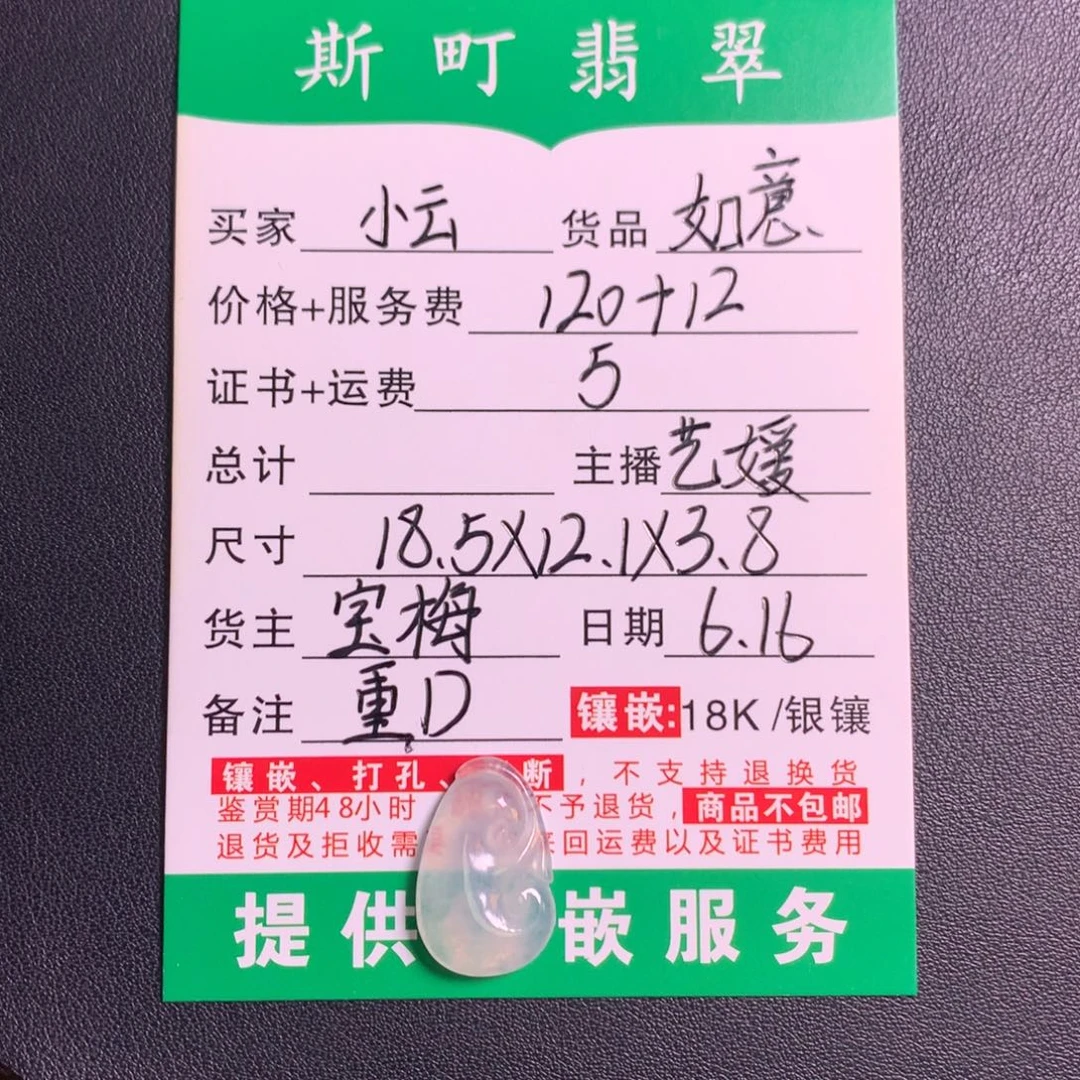 斯町翡翠
买家 小云 货品 如意
价格+服务费 120+12
证书+运费 5
总计 主播 艺媛
尺寸 18.5X12.1X3.8
货主 宝梅 日期 6.16
备注 重D 镶嵌:18K/银镶
镶嵌、打孔、断,不支持退换货
鉴赏期48小时 不予退货,商品不包邮
退货及拒收需 来回运费以及证书费用
提供 嵌服务